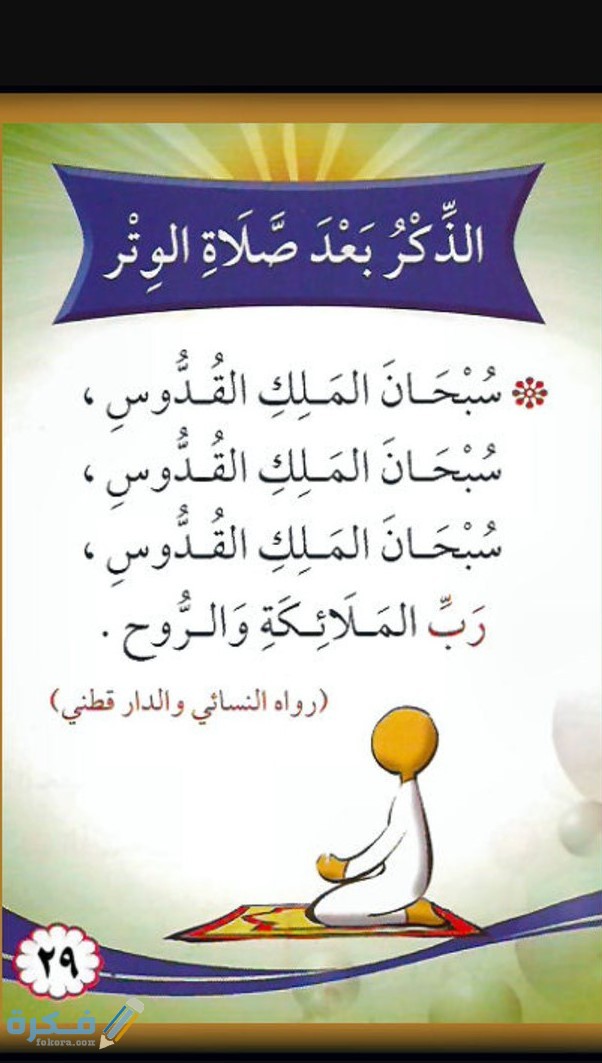 الذِّكْرُ بَعْدَ صَّلَاةِ الوِتْر
سُبْحَـانَ المَـلِكِ القُـدُّوسِ ،
سُبْحَـانَ المَـلِكِ القُـدُّوسِ ،
سُبْحَـانَ المَـلِكِ القُـدُّوسِ ،
رَبِّ المَـلَائِـكَةِ وَالـرُّوح .
(رواه النسائي والدار قطني)
٢٩
فكرة
fokora.com